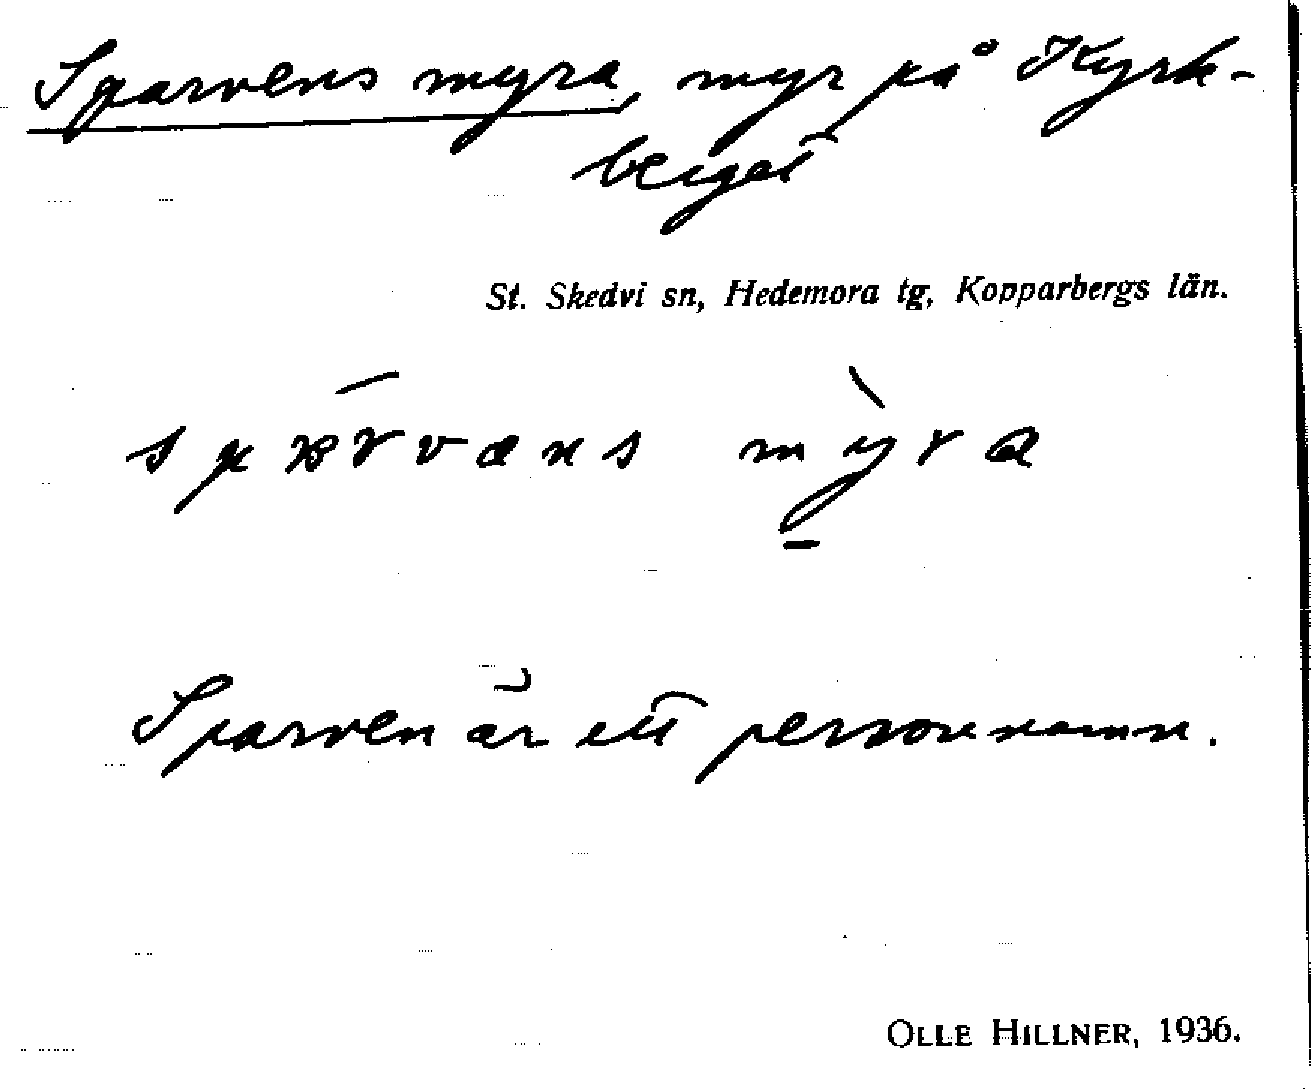 Sparvens myra, myr på Kyrk-
berget
St. Skedvi sn, Hedemora tg, Kopparbergs län.
myra
Sparven är ett personnamn.
OLLE HILLNER, 1936.